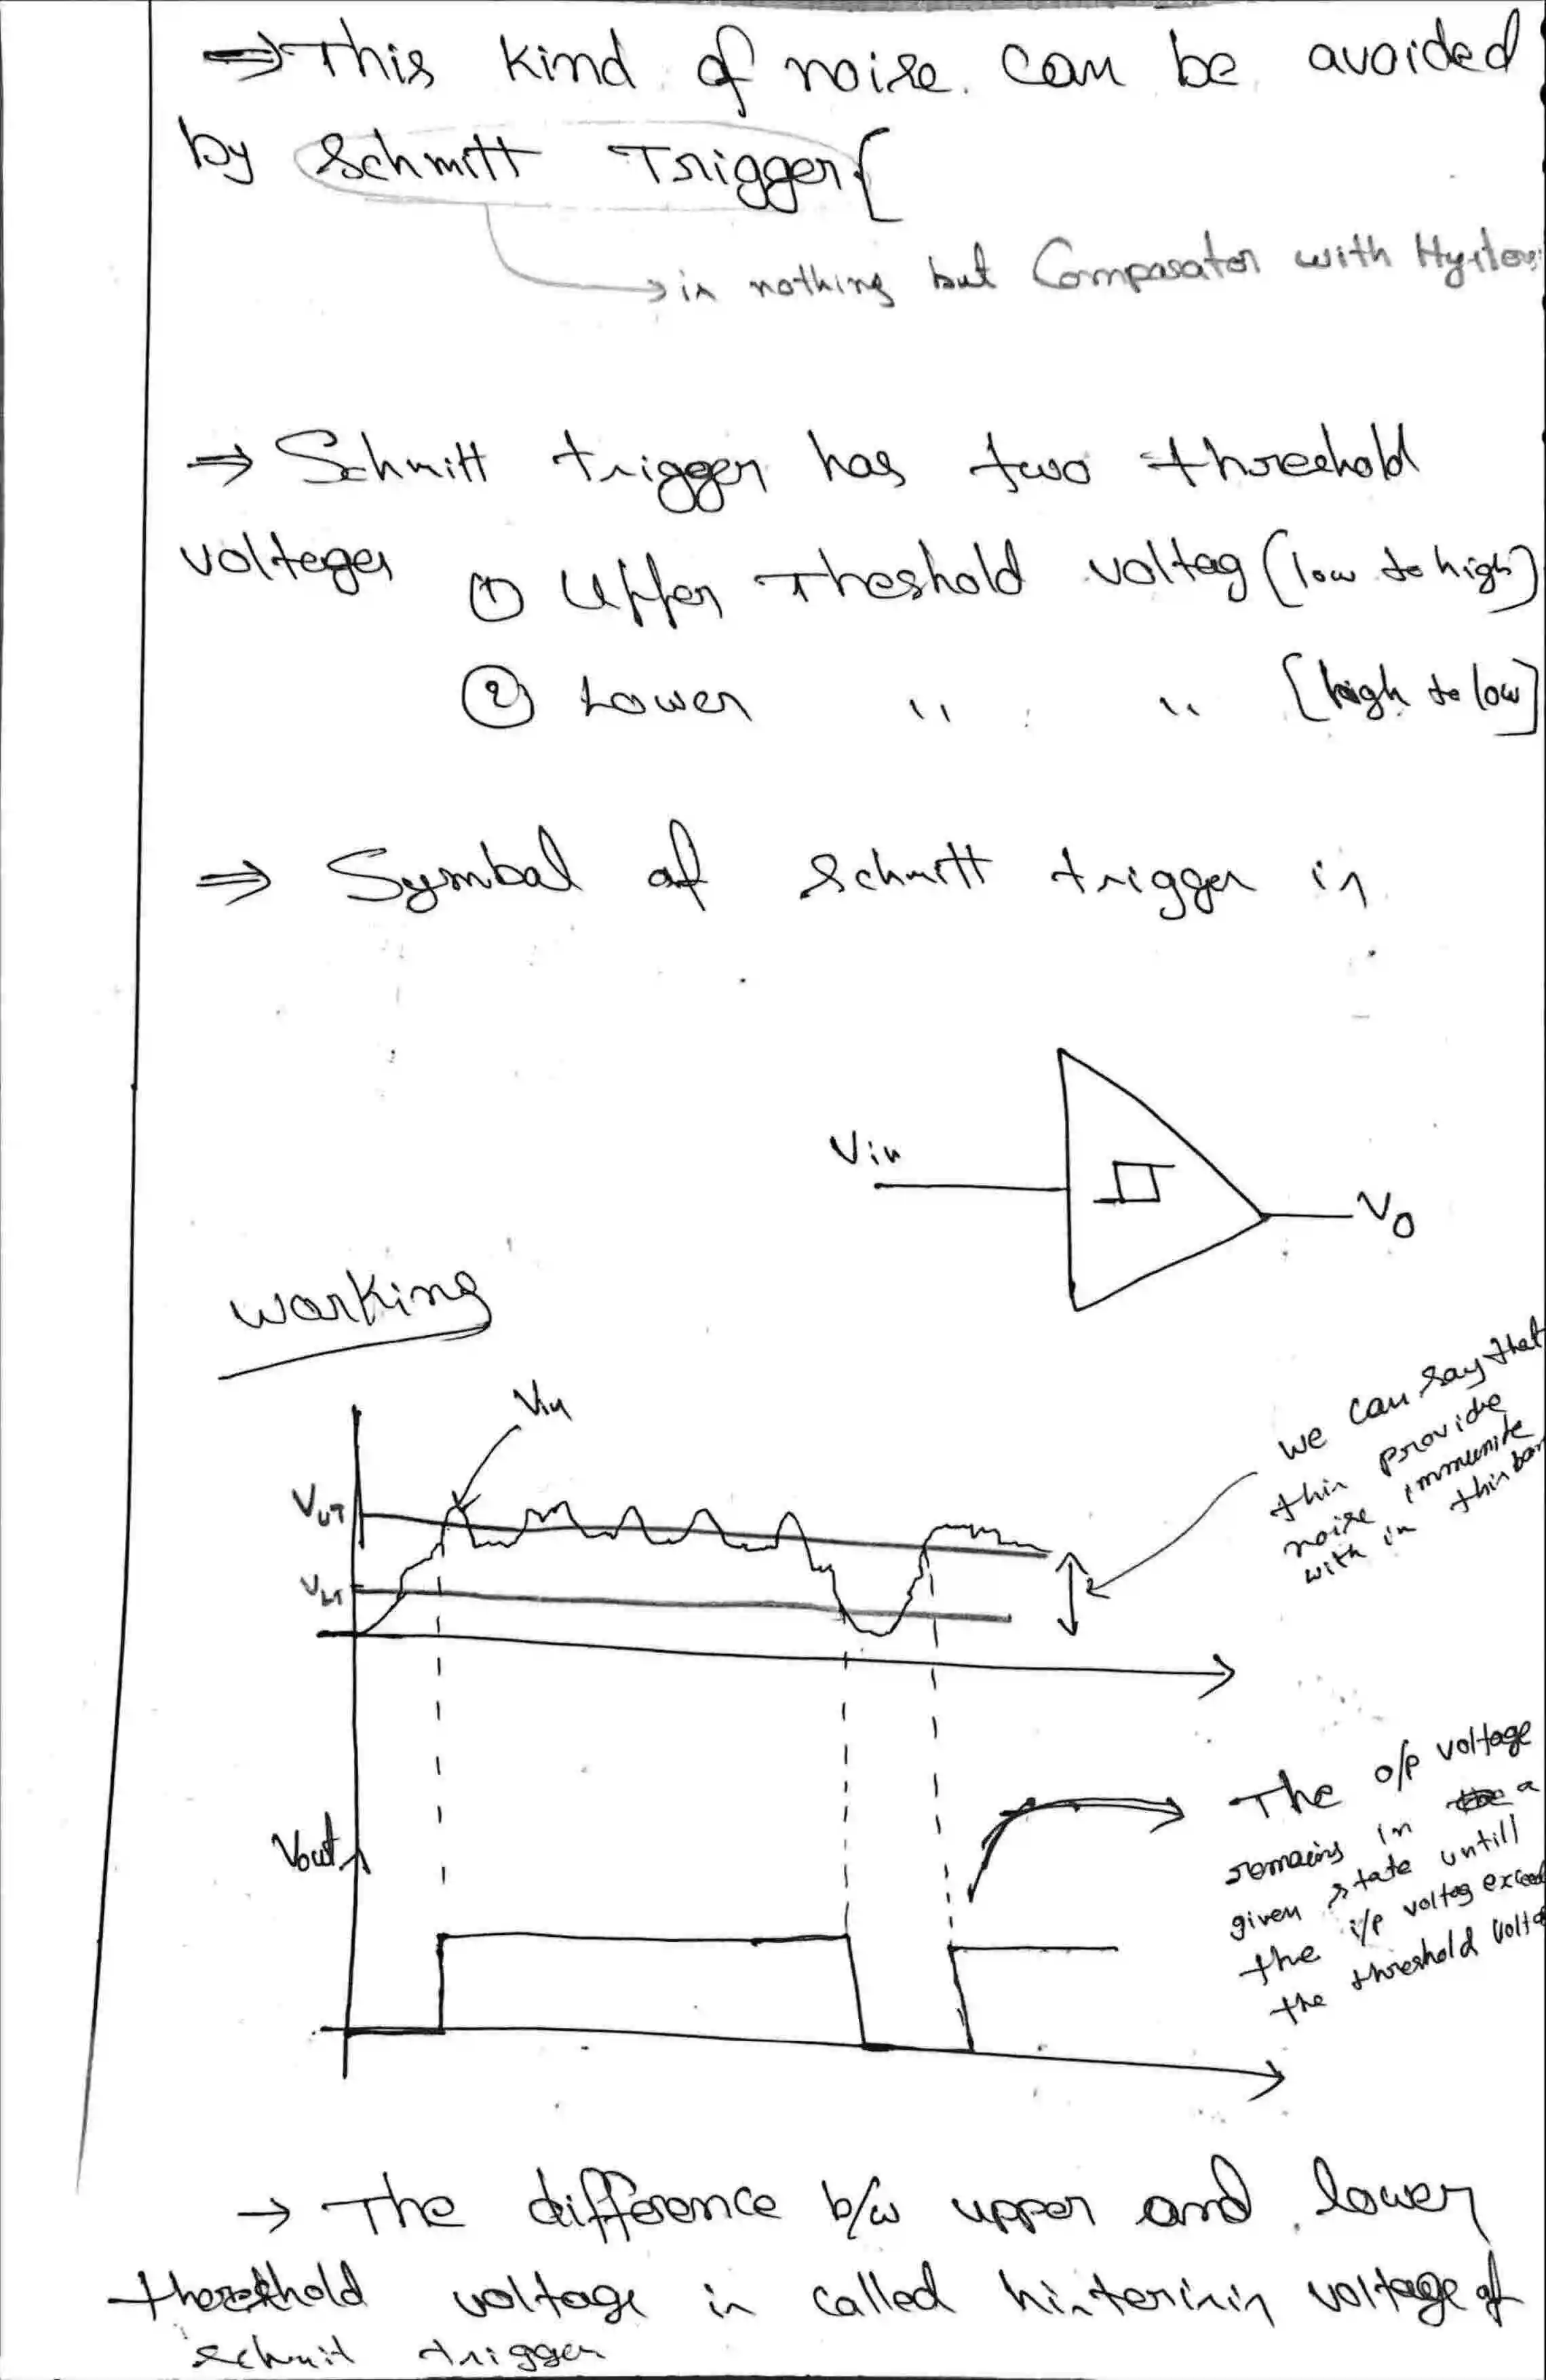 ⇒ This kind of noise can be avoided
by Schmitt Trigger {
→ is nothing but Comparator with Hysteres
⇒ Schmitt trigger has two threshold
volteges ① Upper Theshold voltag (low to high)
② Lower " " [high to low]
⇒ Symbol of Schmitt trigger is
Vin
Vo
working
Vin
we can say that
this provide
noise immunite
with in this ban
VUT
VLT
The o/p voltage
remains in a
given state untill
the i/p voltag exceed
the threshold volta
Vout
→ The difference b/w upper and lower
threshold voltage is called histerisis voltage of
schmit trigger